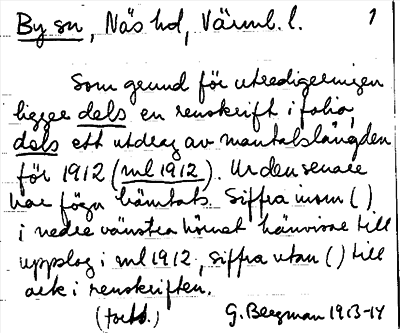 By sn, Näs hd, Värml. l. 1
Som grund för utredigeringen
ligger dels en renskrift i folio,
dels ett utdrag av mantalslängden
för 1912 (ml 1912). Ur den senare
har föga hämtats. Siffra inom ( )
i nedre vänstra hörnet hänvisar till
uppslag i ml 1912, siffra utan ( ) till
ark i renskriften.
(forts.) G. Bergman 1913-14